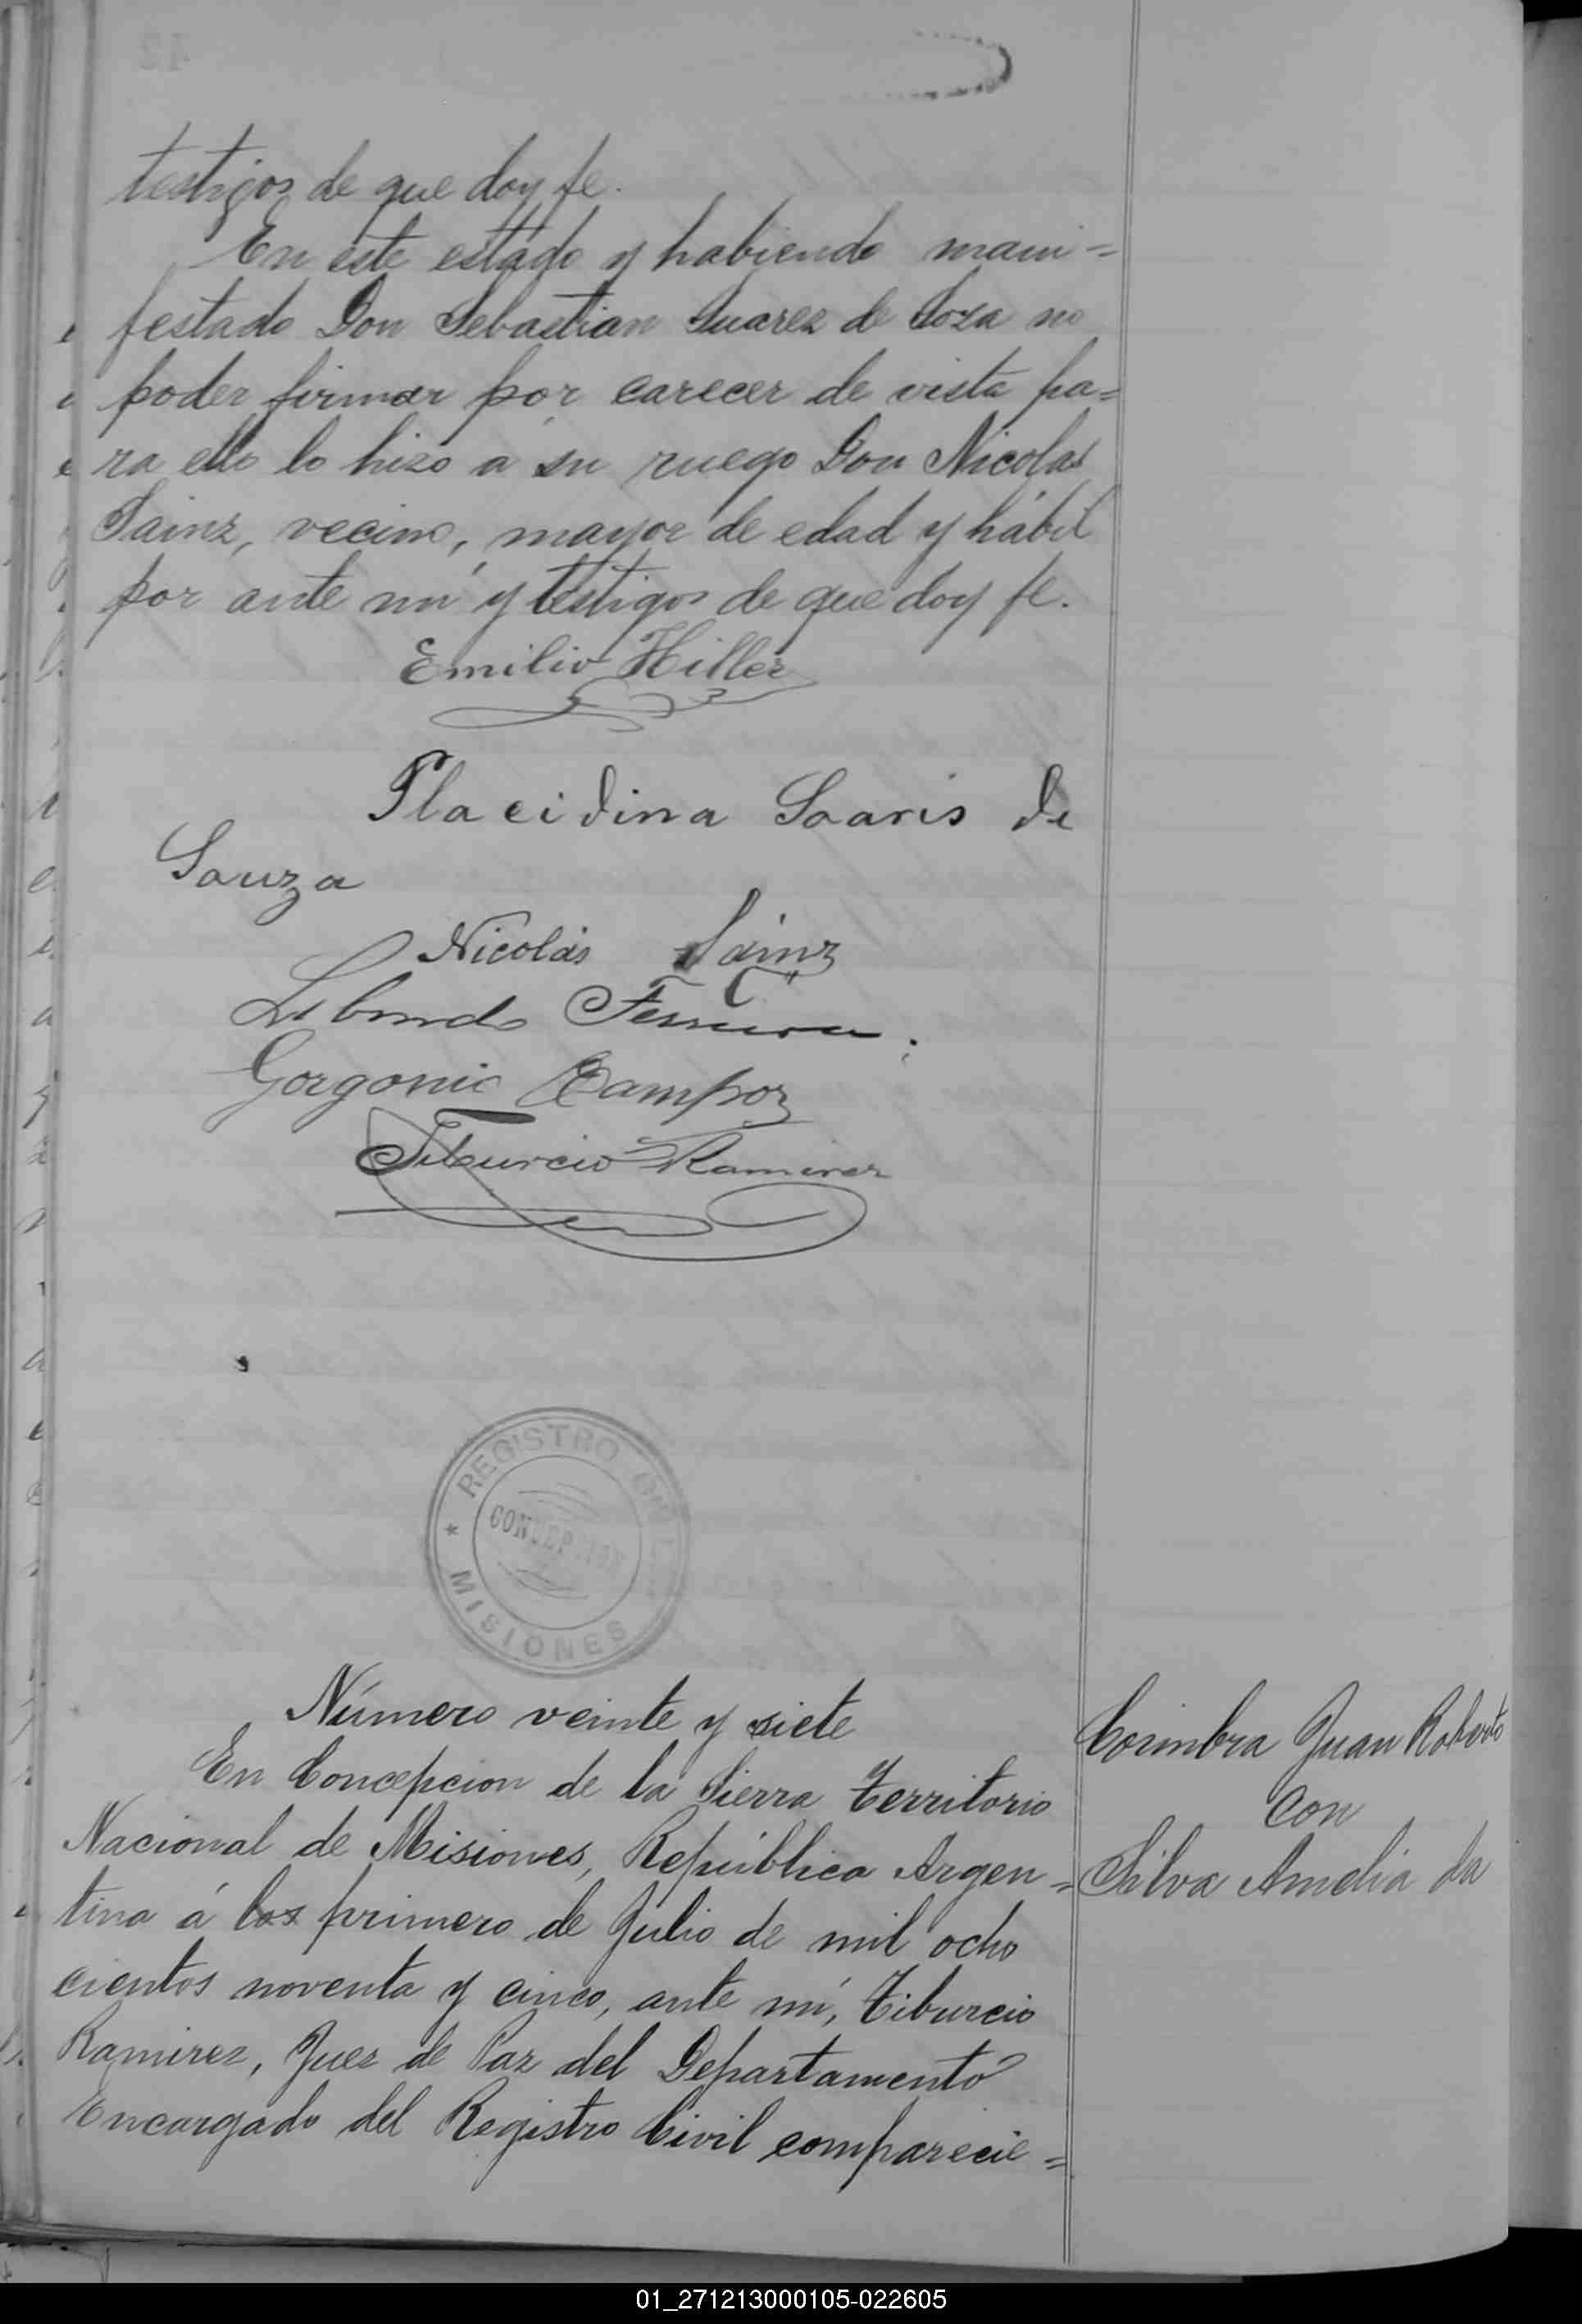 testigos de que doy fe.
En este estado y habiendo mani=
festado Don Sebastian Suarez de Soza no
poder firmar por carecer de vista pa=
ra ello lo hizo a su ruego Don Nicolas
Sainz, vecino, mayor de edad y hábil
por ante mi y testigos de que doy fe.
Emilio Hiller
Placidina Soaris de
Souza
Nicolás Sainz
Ferreira
Gorgonio Campos
Tiburcio Ramirez
REGISTRO CIVIL
CONCEPCION
MISIONES
Número veinte y siete
En Concepcion de la Sierra territorio
Nacional de Misiones, República Argen=
tina á los primero de Julio de mil ocho
cientos noventa y cinco, ante mí, Tiburcio
Ramirez, Juez de Paz del Departamento
Encargado del Registro Civil comparecie=
Coimbra Juan Roberto
con
Silva Amelia da
01_271213000105-022605